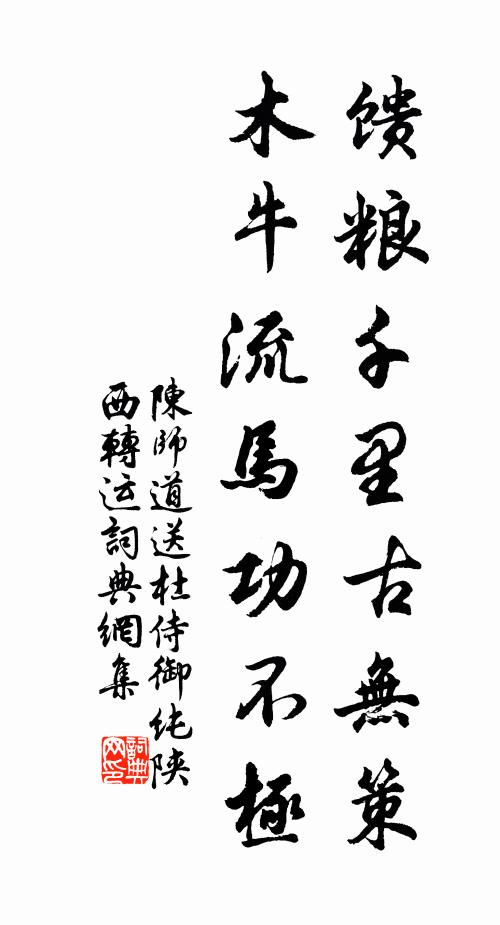 馈粮千里古無策
木牛流馬功不極
陳師道送杜侍御纯陝
西轉运詞典網集
詞典網印